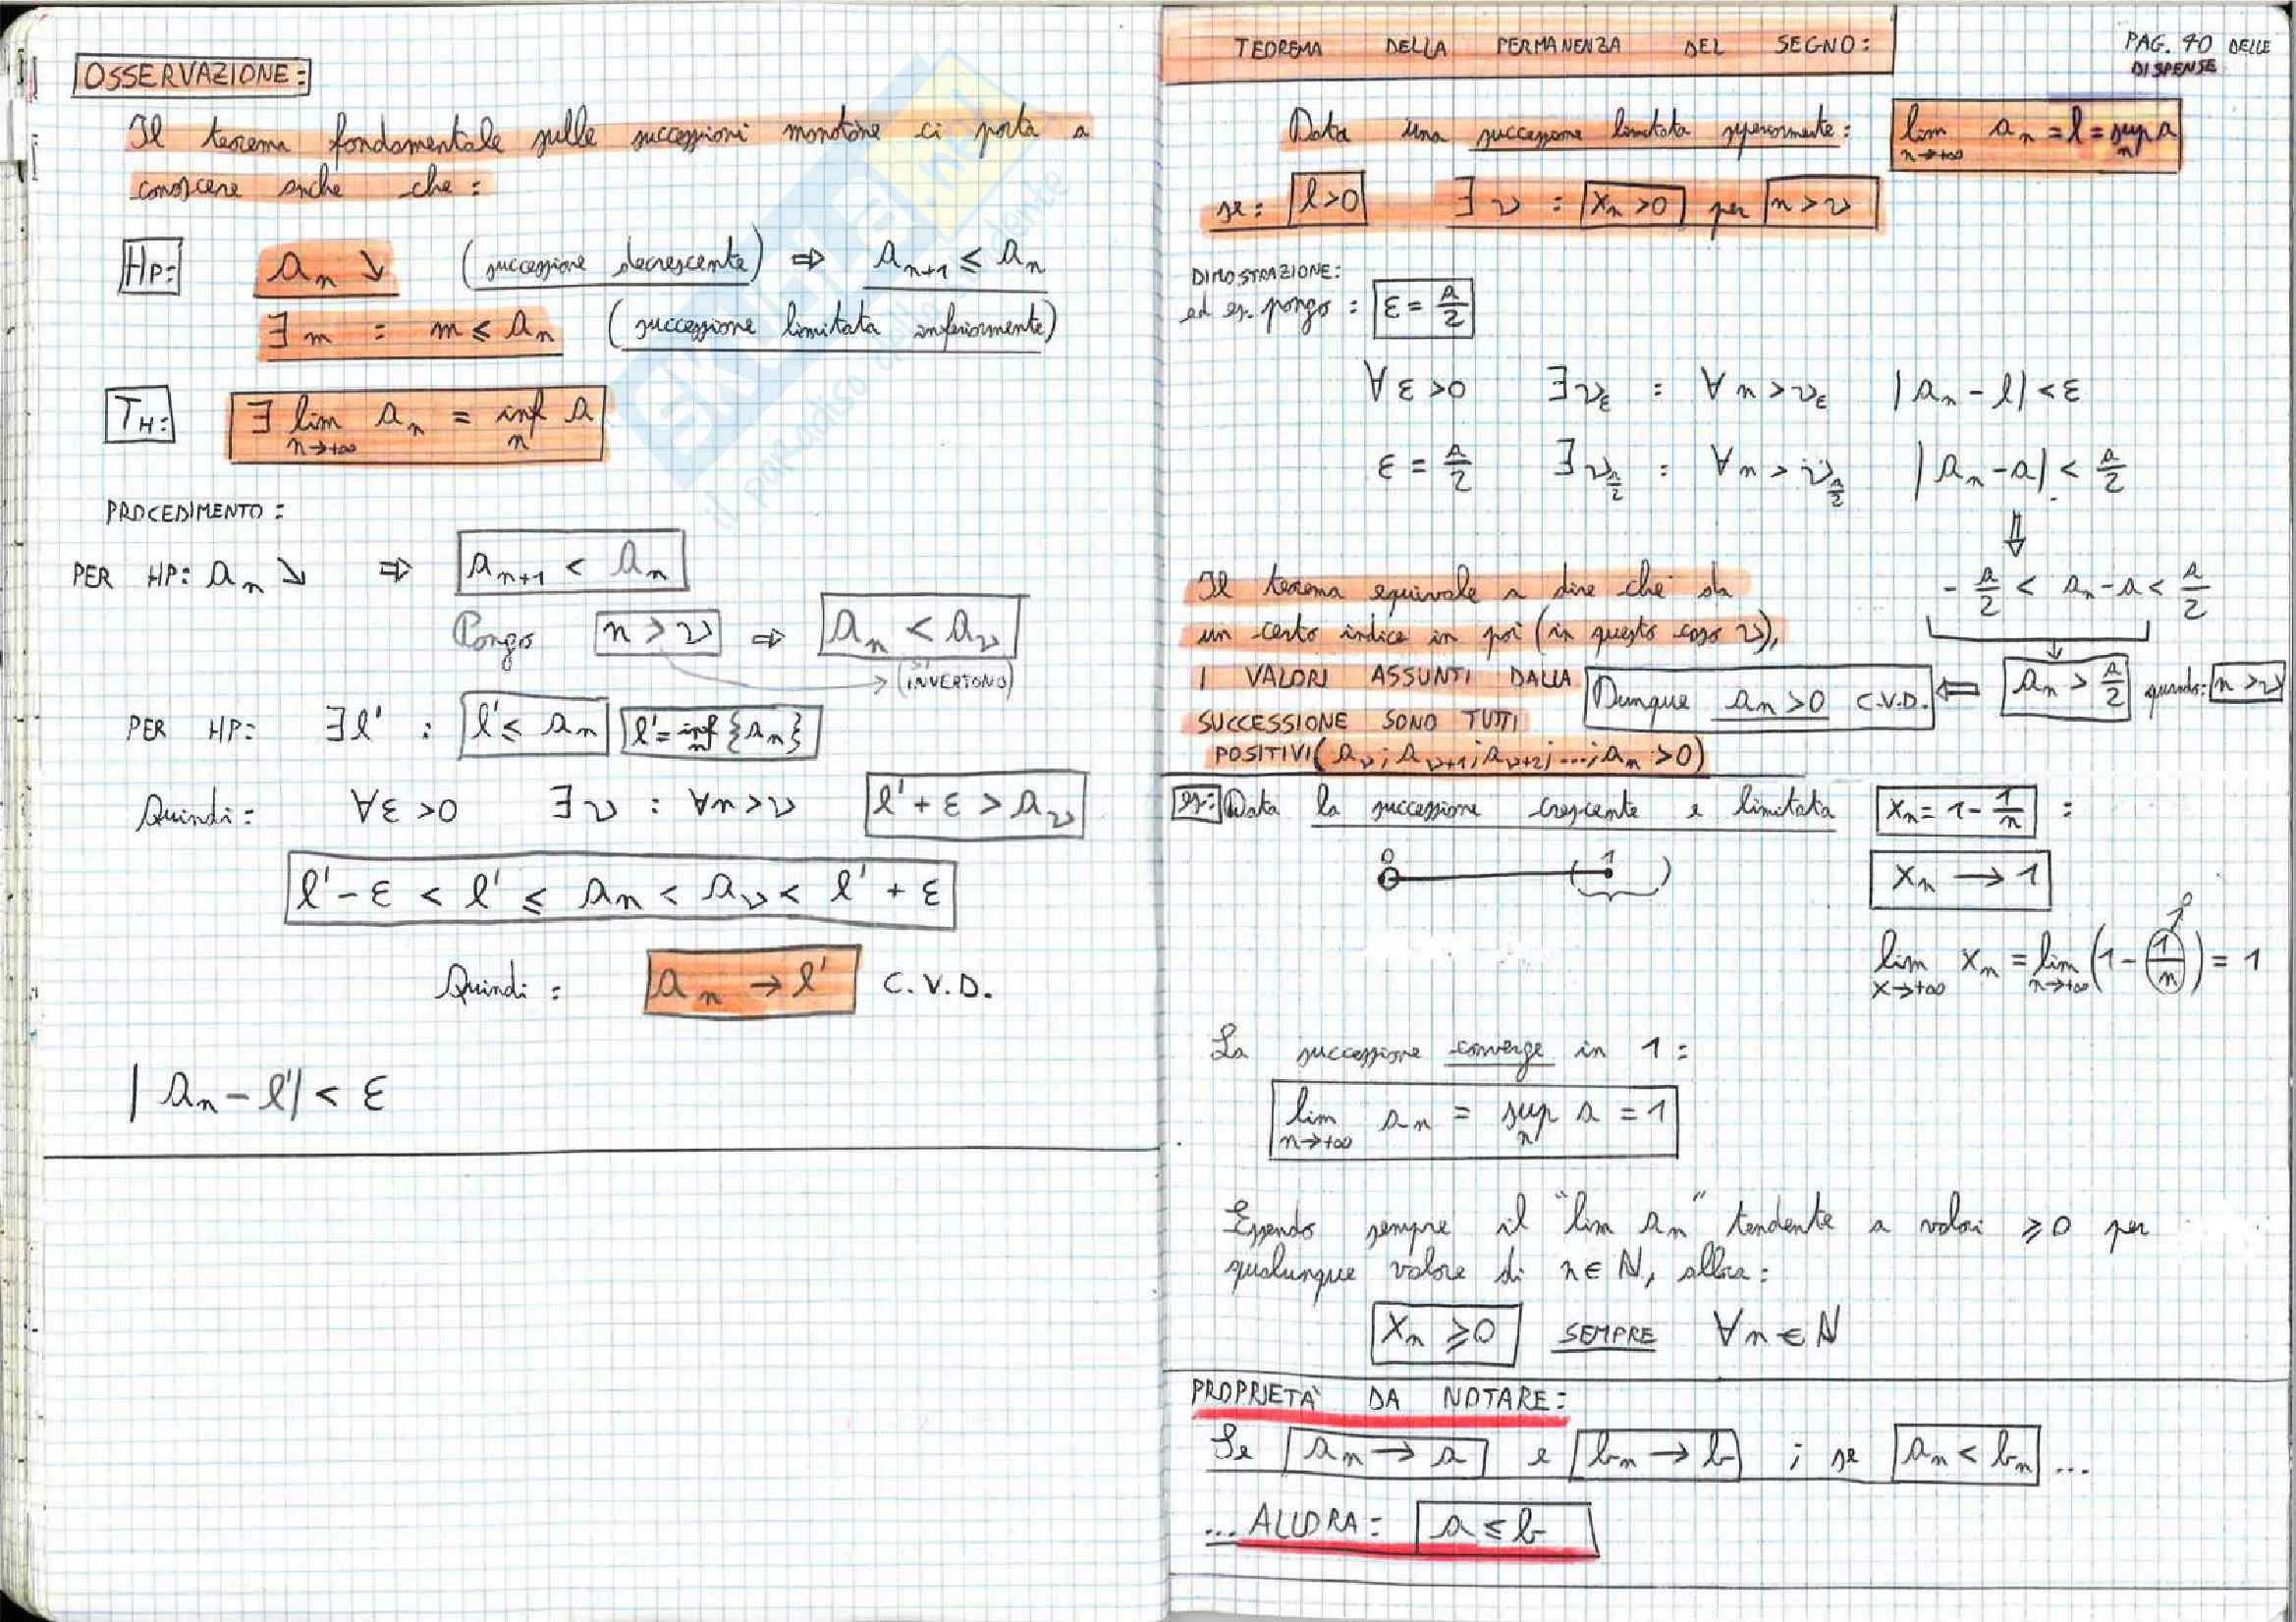 OSSERVAZIONE:
Il teorema fondamentale sulle successioni monotòne ci porta a
conoscere anche che:
HP: aₙ ↘ (successione decrescente) ⇒ aₙ₊₁ ≤ aₙ
∃ m : m ≤ aₙ (successione limitata inferiormente)
TH: ∃ lim aₙ = inf a
n→+∞ n
PROCEDIMENTO:
PER HP: aₙ ↘ ⇒ aₙ₊₁ < aₙ
Pongo n > ν ⇒ aₙ < a_ν
(SI INVERTONO)
PER HP: ∃ l' : l' ≤ aₙ l' = inf {aₙ}
n
Quindi: ∀ε>0 ∃ν : ∀n>ν l'+ε > a_ν
l'-ε < l' ≤ aₙ < a_ν < l'+ε
Quindi: aₙ → l' C.V.D.
|aₙ - l'| < ε
TEOREMA DELLA PERMANENZA DEL SEGNO:
PAG. 40 DELLE
DISPENSE
Data una successione limitata superiormente: lim aₙ = l = sup a
n→+∞ n
se: l>0 ∃ν : xₙ>0 per n>ν
DIMOSTRAZIONE:
ad es. pongo: ε = a/2
∀ε>0 ∃ν_ε : ∀n>ν_ε |aₙ - l| < ε
ε = a/2 ∃ν_a/2 : ∀n>ν_a/2 |aₙ - a| < a/2
⇓
-a/2 < aₙ - a < a/2
aₙ > a/2 quando: n>ν
⇐ Dunque aₙ>0 C.V.D.
Il teorema equivale a dire che da
un certo indice in poi (in questo caso ν),
I VALORI ASSUNTI DALLA
SUCCESSIONE SONO TUTTI
POSITIVI (a_ν; a_ν+1; a_ν+2; ...; aₙ >0)
es: Data la successione crescente e limitata xₙ = 1 - 1/n :
0 1
xₙ → 1
lim xₙ = lim (1 - 1/n) = 1
x→+∞ n→+∞
0
La successione converge in 1:
lim aₙ = sup a = 1
n→+∞ n
Essendo sempre il "lim aₙ" tendente a valori ⩾0 per
qualunque valore di n∈ℕ, allora:
xₙ ⩾0 SEMPRE ∀n∈ℕ
PROPRIETÀ DA NOTARE:
Se aₙ → a e bₙ → b ; se aₙ < bₙ ...
... ALLORA: a ≤ b